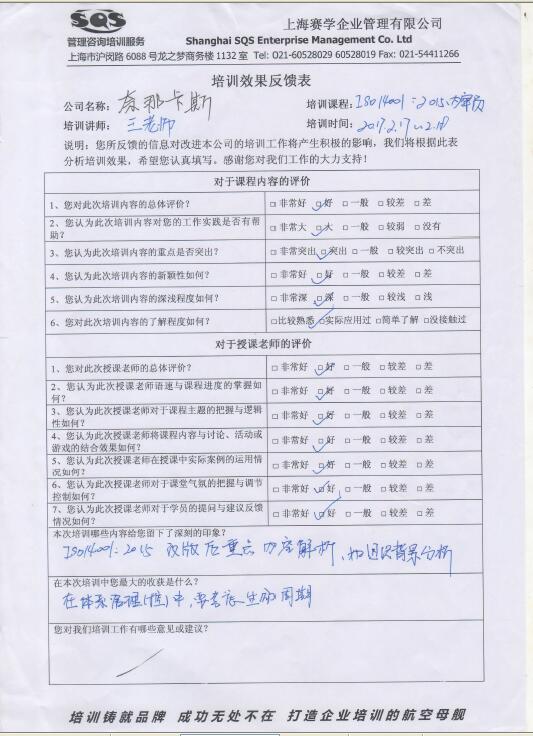 SQS
管理咨询培训服务
上海赛学企业管理有限公司
Shanghai SQS Enterprise Management Co. Ltd
上海市沪闵路 6088 号龙之梦商务楼 1132 室 Tel: 021-60528029 60528019 Fax: 021-54411266
培训效果反馈表
公司名称：奈那卡斯 培训课程：ISO14001：2015内审员
培训讲师：王老师 培训时间：2017.2.17~2.18
说明：您所反馈的信息对改进本公司的培训工作将产生积极的影响，我们将根据此表
分析培训效果，希望您认真填写。感谢您对我们工作的大力支持！
对于课程内容的评价
1、您对此次培训内容的总体评价？ □ 非常好 □ 好 □ 一般 □ 较差 □ 差
2、您认为此次培训内容对您的工作实践是否有帮
助？ □ 非常大 □ 大 □ 一般 □ 较弱 □ 没有
3、您认为此次培训内容的重点是否突出？ □ 非常突出 □ 突出 □ 一般 □ 较突出 □ 不突出
4、您认为此次培训内容的新颖性如何？ □ 非常好 □ 好 □ 一般 □ 较差 □ 差
5、您认为此次培训内容的深浅程度如何？ □ 非常深 □ 深 □ 一般 □ 较浅 □ 浅
6、您对此次培训内容的了解程度如何？ □比较熟悉 □实际应用过 □简单了解 □没接触过
对于授课老师的评价
1、您对此次授课老师的总体评价？ □ 非常好 □ 好 □ 一般 □ 较差 □ 差
2、您认为此次授课老师语速与课程进度的掌握如
何？ □ 非常好 □ 好 □ 一般 □ 较差 □ 差
3、您认为此次授课老师对于课程主题的把握与逻辑
性如何？ □ 非常好 □ 好 □ 一般 □ 较差 □ 差
4、您认为此次授课老师将课程内容与讨论、活动或
游戏的结合效果如何？ □ 非常好 □ 好 □ 一般 □ 较差 □ 差
5、您认为此次授课老师在授课中实际案例的运用情
况如何？ □ 非常好 □ 好 □ 一般 □ 较差 □ 差
6、您认为此次授课老师对于课堂气氛的把握与调节
控制如何？ □ 非常好 □ 好 □ 一般 □ 较差 □ 差
7、您认为此次授课老师对于学员的提问与建议反馈
情况如何？ □ 非常好 □ 好 □ 一般 □ 较差 □ 差
本次培训哪些内容给您留下了深刻的印象？
ISO14001：2015 改版后重点内容解析，和 背景分析
在本次培训中您最大的收获是什么？
在体系管理 中，要考虑生命周期
您对我们培训工作有哪些意见或建议？
培训铸就品牌 成功无处不在 打造企业培训的航空母舰